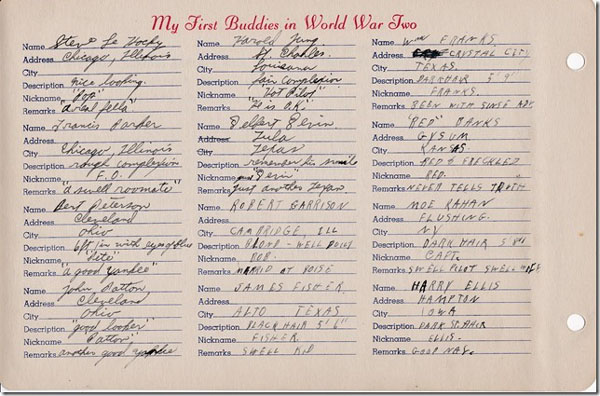 My First Buddies in World War Two
Name Steve Le Hocky
Address Chicago, Illinois
City
Description nice looking
Nickname "Pop"
Remarks "a real fella"
Name Francis Parker
Address
City Chicago, Illinois
Description rough complexion
Nickname F.O.
Remarks "a swell roomate"
Name Bert Peterson
Address Cleveland
City Ohio
Description 6ft, in with eyes of blue
Nickname "Pete"
Remarks "a good yankee"
Name John Patton
Address Cleveland
City Ohio
Description "good looker"
Nickname "Patton"
Remarks another good yankee
Name Harold King
Address St. Charles
City Louisana
Description fair complexion
Nickname "Hot Pilot"
Remarks "H is O.K."
Name Delbert
Address Tula
City Texas
Description remember his smile
Nickname
Remarks Just another Texan
Name ROBERT GARRISON
Address
City CAMBRIDGE, ILL
Description BLOND - WELL
Nickname BOB.
Remarks MARRIED AT BOISE
Name JAMES FISHER
Address
City ALTO TEXAS
Description BLACK HAIR 5' 6"
Nickname FISHER
Remarks SWELL KID
Name Wm FRANKS.
Address CRYSTAL CITY
City TEXAS.
Description DARKHAIR 5' 9"
Nickname FRANKS.
Remarks BEEN WITH SINSE ADV.
Name "RED" BANKS
Address GYSUM
City KANSAS
Description RED & FRECKLED
Nickname RED.
Remarks NEVER TELLS TRUTH
Name MOE KAHAN
Address FLUSHING.
City NY
Description DARK HAIR 5
Nickname CAPT.
Remarks SWELL PILOT SWELL WIFE
Name HARRY ELLIS
Address HAMPTON
City IOWA
Description DARK ST. HAIR
Nickname ELLIS.
Remarks GOOD NAV.